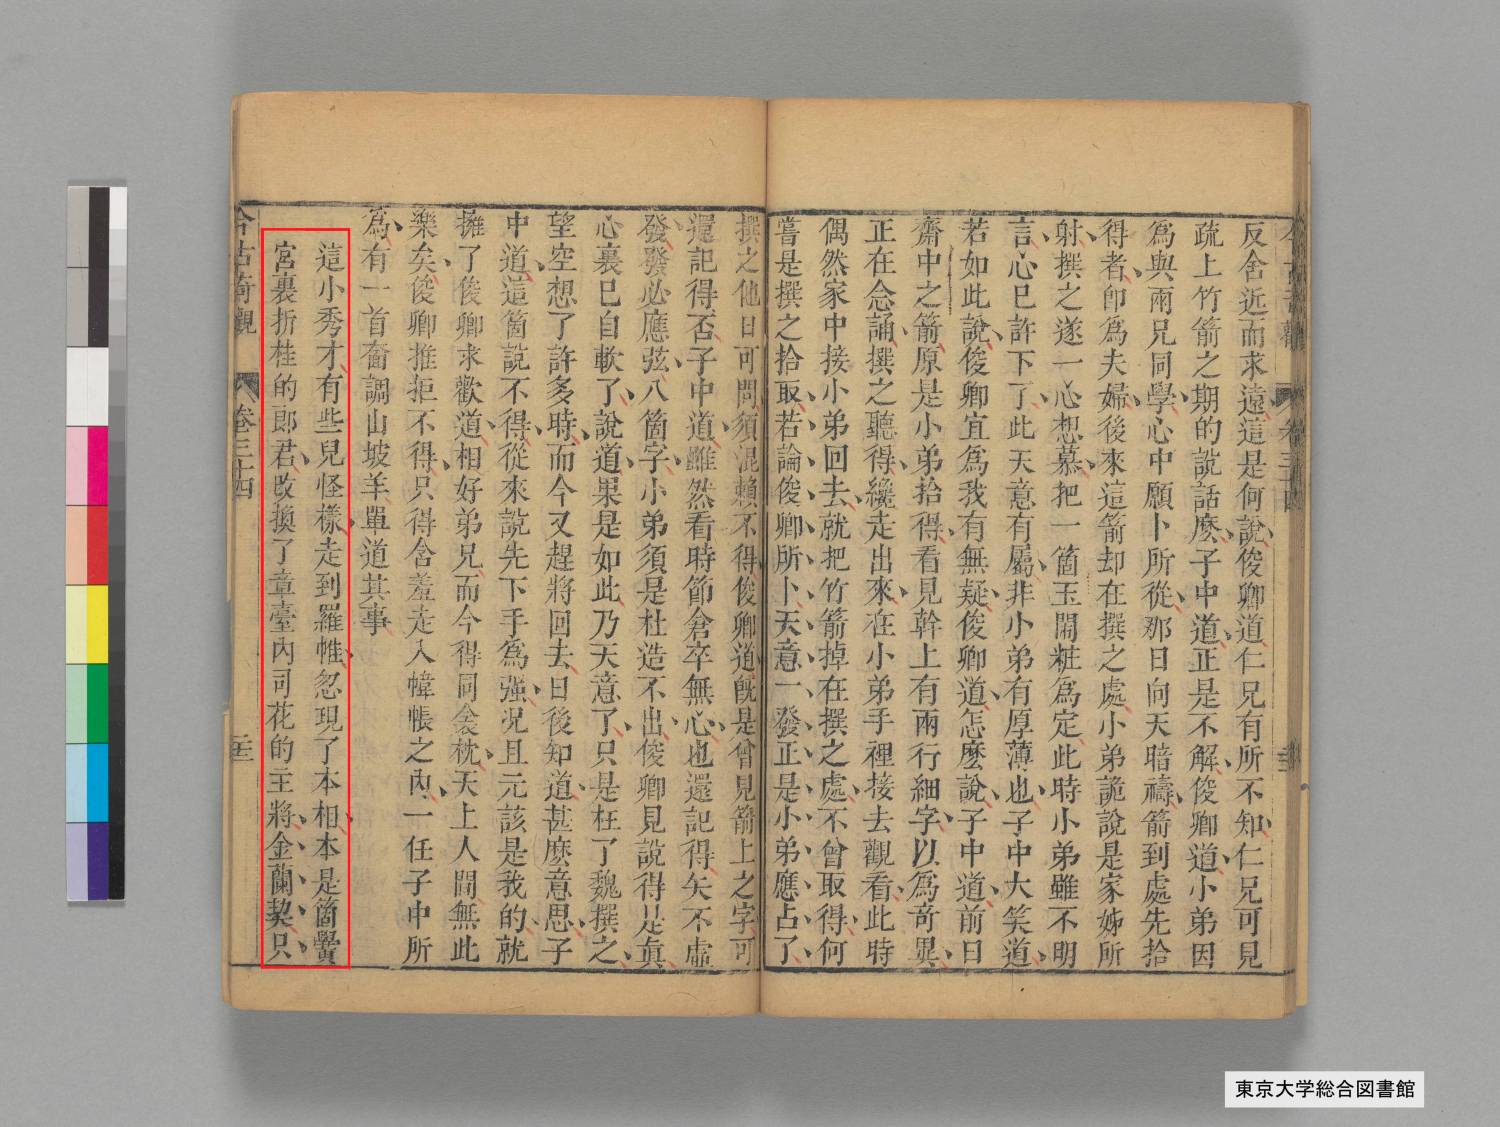 反舍近而求遠這是何説俊卿道仁兄有所不知仁兄可見
疏上竹箭之期的説話麽子中道正是不解俊卿道小弟因
爲與兩兄同學心中願卜所從那日向天暗禱箭到處先拾
得者卽爲夫婦後來這箭却在撰之處小弟詭說是家姊所
射撰之遂一心想慕把一箇玉閙粧爲定此時小弟雖不明
言心已許下了此天意有屬非小弟有厚薄也子中大笑道
若如此說俊卿宜爲我有無疑俊卿道怎麽說子中道前日
齋中之箭原是小弟拾得看見幹上有兩行細字以爲奇異
正在念誦撰之聽得纔走出來在小弟手裡接去觀看此時
偶然家中接小弟回去就把竹箭掉在撰之處不曾取得何
嘗是撰之拾取若論俊卿所卜天意一發正是小弟應占了
撰之他日可問須混賴不得俊卿道旣是曾見箭上之字可
還記得否子中道雖然看時節倉卒無心也還記得矢不虛
發發必應弦八箇字小弟須是杜造不出俊卿見說得是真
心裏已自軟了說道果是如此乃天意了只是枉了魏撰之
望空想了許多時而今又趕將回去日後知道甚麽意思子
中道這箇說不得從來說先下手爲强況且元該是我的就
擁了俊卿求歡道相好弟兄而今得同衾枕天上人間無此
樂矣俊卿推拒不得只得含羞走入幃帳之內一任子中所
爲有一首奮調山坡羊單道其事
這小秀才有些兒怪樣走到羅帷忽現了本相本是箇黌
宮裏折桂的郎君改換了章臺內司花的主將金蘭契只
今古奇觀
卷三十四
今古奇觀 卷三十四
東京大学総合図書館